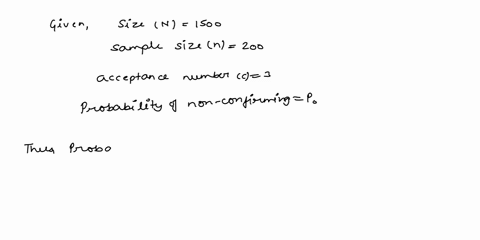 Given, Size (N) = 1500
Sample size (n) = 200
acceptance number (c) = 3
Probability of non-confirming = P₀
Thus, Proba